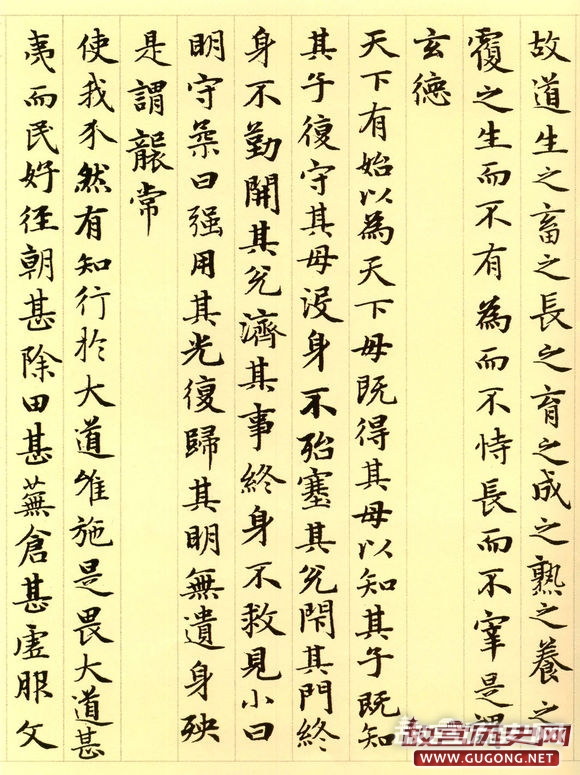 故道生之畜之長之育之成之熟之養之
覆之生而不有為而不恃長而不宰是謂
玄德
天下有始以為天下母既得其母以知其子既知
其子復守其母没身不殆塞其兌閇其門終
身不勤開其兌濟其事終身不救見小曰
明守柔曰强用其光復歸其明無遺身殃
是謂襲常
使我介然有知行於大道唯施是畏大道甚
夷而民好徑朝甚除田甚蕪倉甚虛服文
故宫历史网
WWW.GUGONG.NET